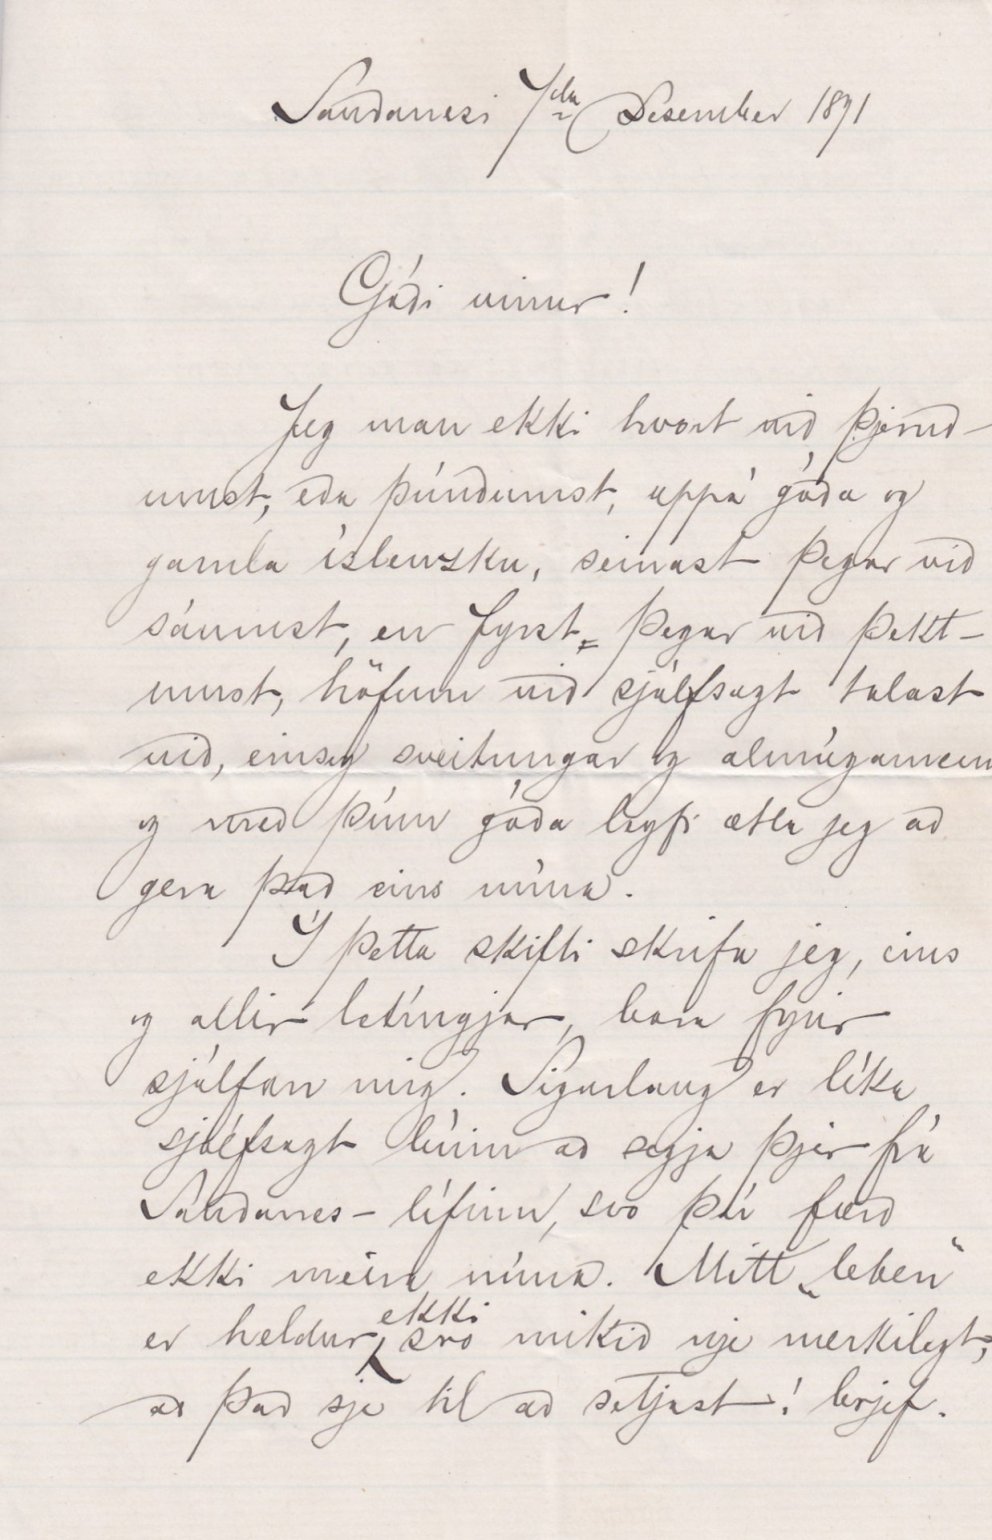 Sauðanesi 7da Desember 1891
Góði vinur!
Jeg man ekki hvort við þjeruð-
umst, eða þúuðumst, uppá góða og
gamla íslenzku, seinast þegar við
sáumst, en fyrst þegar við þekt-
umst, höfum við sjálfsagt talast
við, einsog sveitungar og almúgamenn
og með þínu góða leyfi ætla jeg að
gera það eins núna.
Í þetta skifti skrifa jeg, eins
og allir letingjar, bara fyrir
sjálfan mig. Sigurlaug er líka
sjálfsagt búin að segja þjer frá
Sauðanes-lífinu, svo þú færð
ekki meira núna. Mitt „leben“
er heldur ekki svo mikið nje merkilegt,
að það sje til að setjast í brjef.